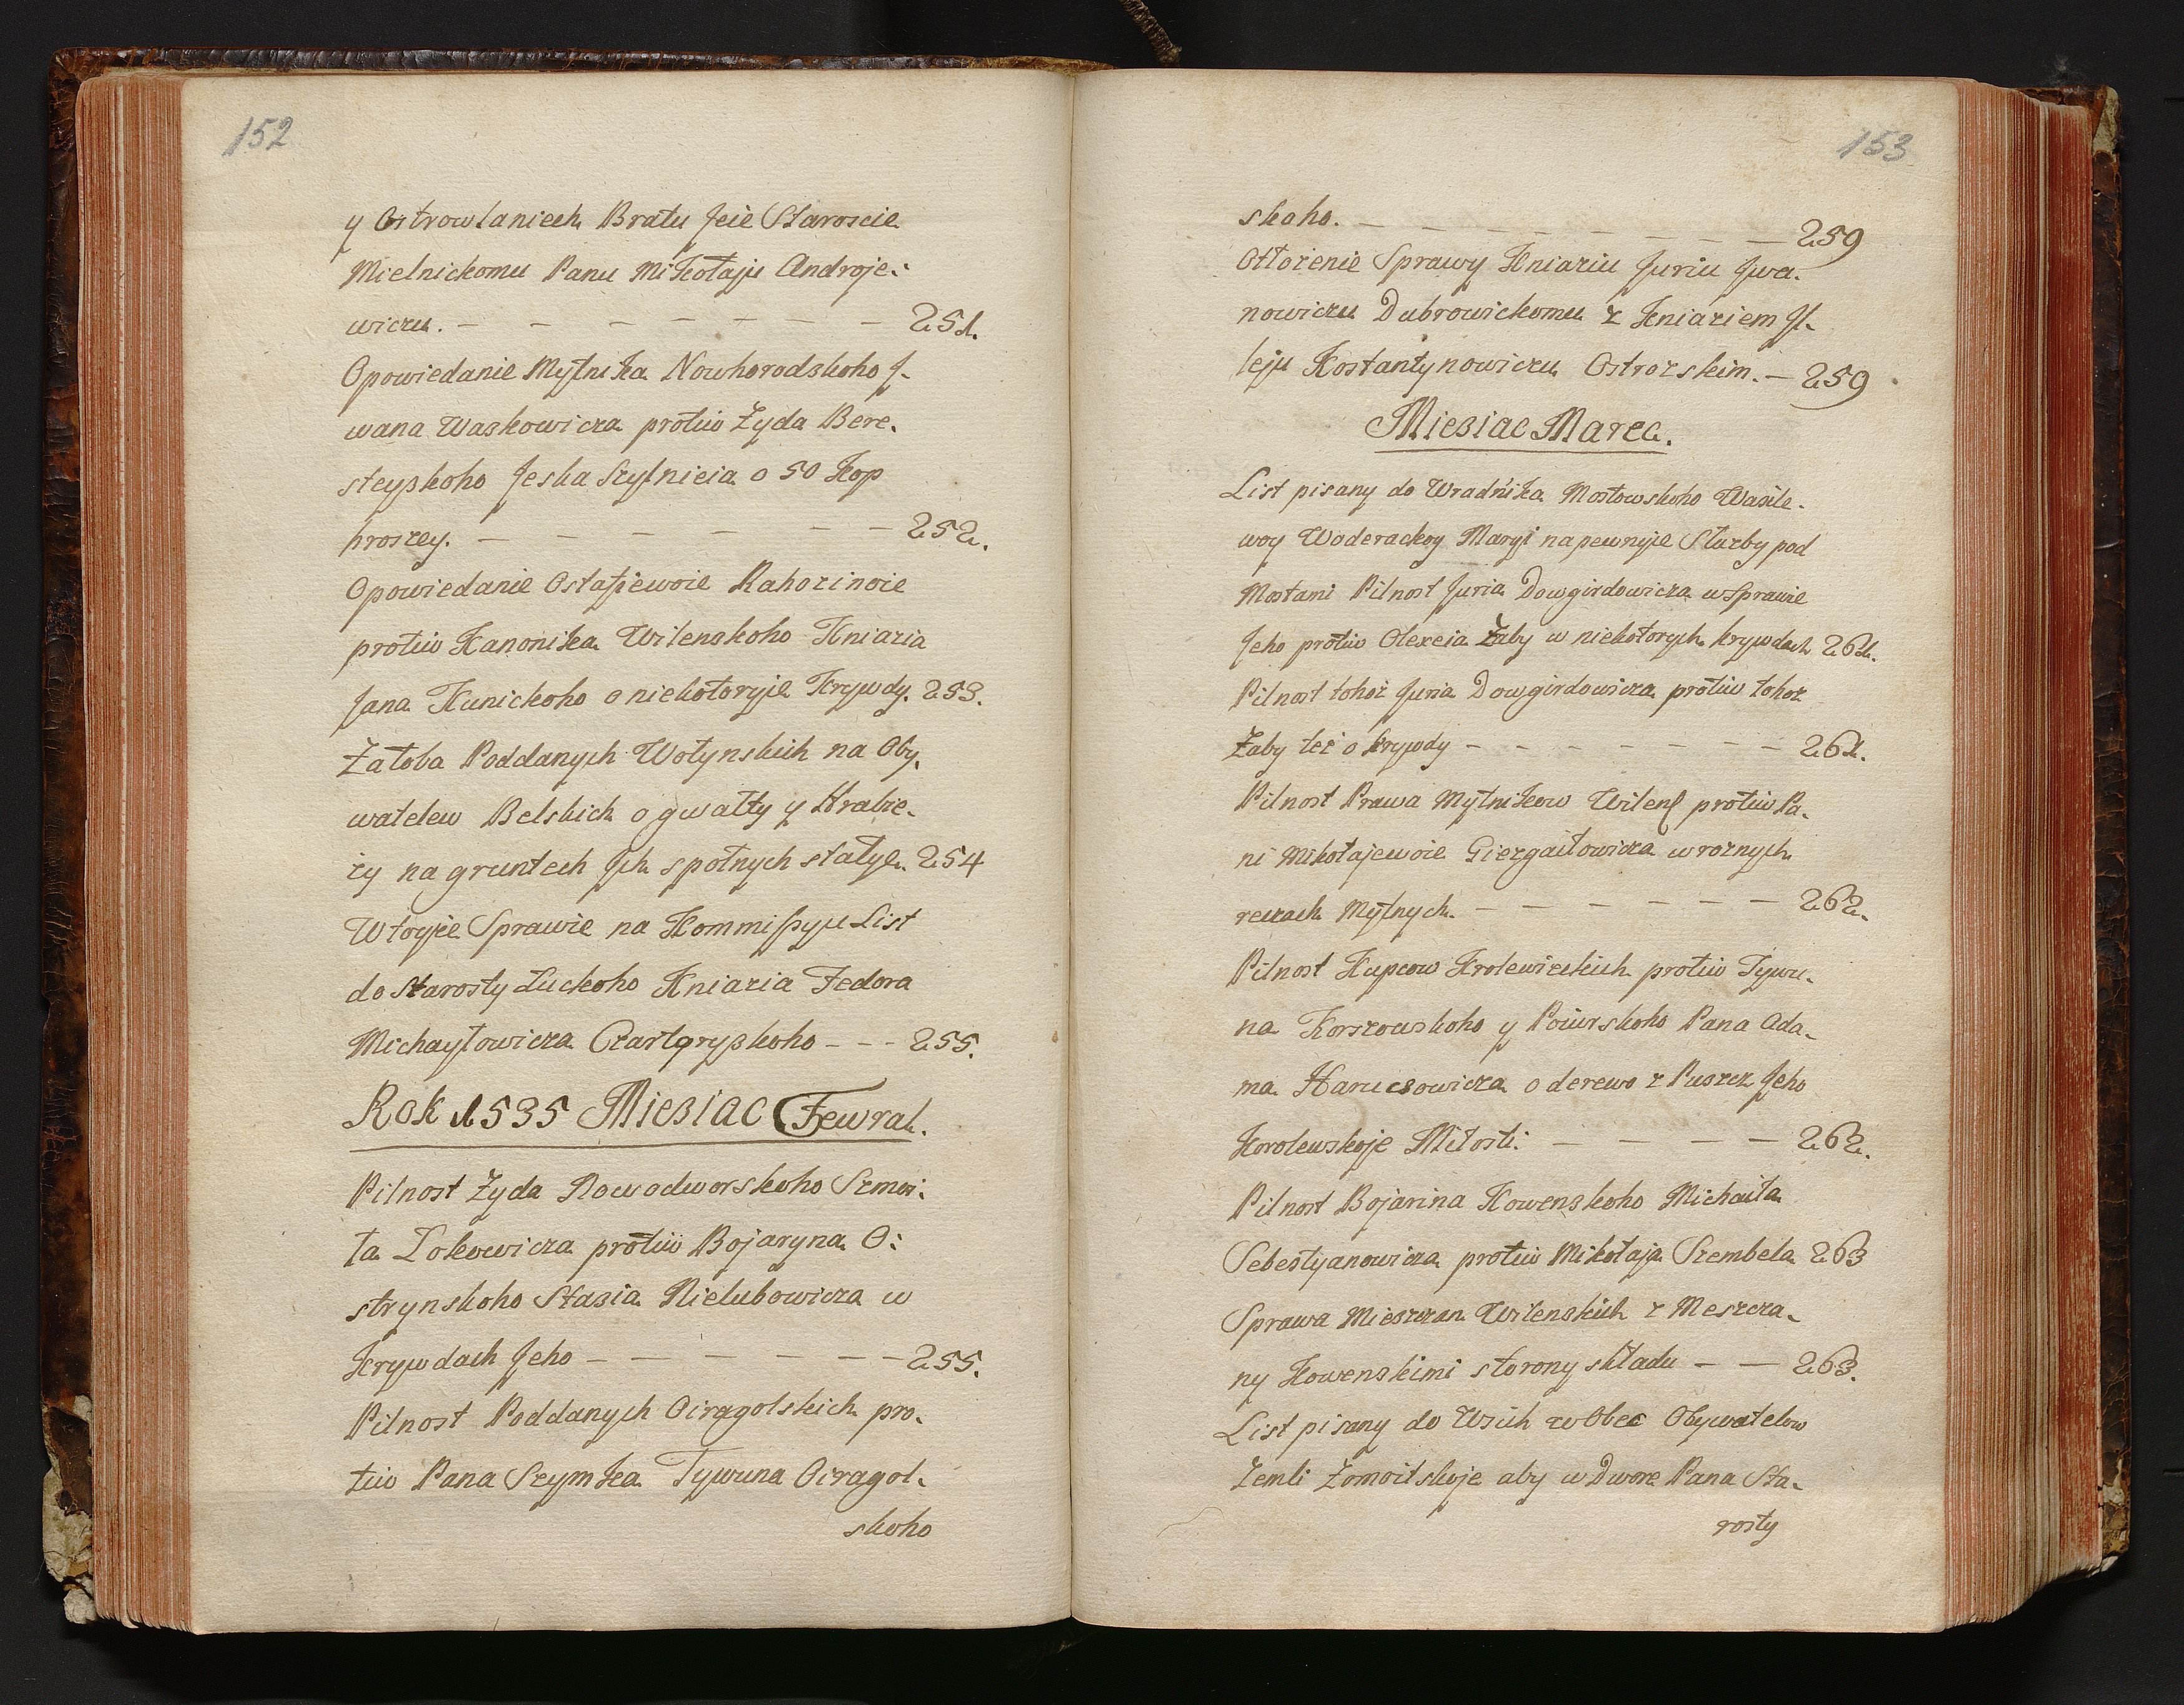 152
y Ostrowlaniech Bratu Jeie Staroscie
Mielnickomu Panu Mikołaju Androje-
wiczu. — — — — — — — 251.
Opowiedanie Mytnika Nowhorodskoho J-
wana Waskowicza protiw Żyda Bere-
steyskoho Jeska Szylnicia o 50 Kop
hroszey. — — — — — — 252.
Opowiedanie Ostafiewoie Rahozinoie
protiw Kanonika Wilenskoho Kniazia
Jana Kunickoho o niekotoryie Krywdy. 253.
Żałoba Poddanych Wołynskich na Oby-
watelew Belskich o gwałty y Hrabie-
ży na gruntech Jch spolnych stałye. 254
W toyże Sprawie na Kommissyu List
do Starosty Łuckoho Kniazia Fedora
Michayłowicza Czartoryskoho - - - 255.
Rok 1535 Miesiac Fewral.
Pilnost Żyda Nowodworskoho Szmoi-
ła Łokowicza protiw Bojaryna O-
strynskoho Stasia Nielubowicza w
Krywdach Jeho — — — — — — 255.
Pilnost Poddanych Oiragolskich pro-
tiw Pana Szymka Tywuna Oiragol-
skoho
153
skoho. — — — — — — — — 259
Otłożenie Sprawy Kniaziu Juriu Jwa-
nowiczu Dubrowickomu z Kniaziem Jl-
leju Kostantynowiczu Ostrozskim. — 259
Miesiac Marec.
List pisany do Wradnika Mostowskoho Wasile-
woy Woderackoy Maryi na pewnyie Służby pod
Mostami Pilnost Juria Dowgirdowicza w Sprawie
Jeho protiw Olexeia Żaby w niekotorych krywdach 261.
Pilnost tohoż Juria Dowgirdowicza protiw tohoż
Żaby też o krywdy — — — — — — — 261.
Pilnost Prawa Mytnikow Wilen protiw Pa-
ni Mikołajewoie Giezgaitowicza w roznych
reczach Mytnych. — — — — — — 262.
Pilnost Kupcow Krolewieckich protiw Tywu-
na Korszowskoho y Poiurskoho Pana Ada-
ma Harucsowicza o derewo z Puszcz Jeho
Korolewskoje Miłosti. — — — — — 262.
Pilnost Bojarina Kowenskoho Michaiła
Sebestyanowicza protiw Mikołaja Szembela 263
Sprawa Mieszczan Wilenskich z Meszcza-
ny Kowenskimi storony składu — — 263.
List pisany do Wsich w Obec Obywatelow
Zemli Żomoitskoje aby w Dwore Pana Sta-
rosty